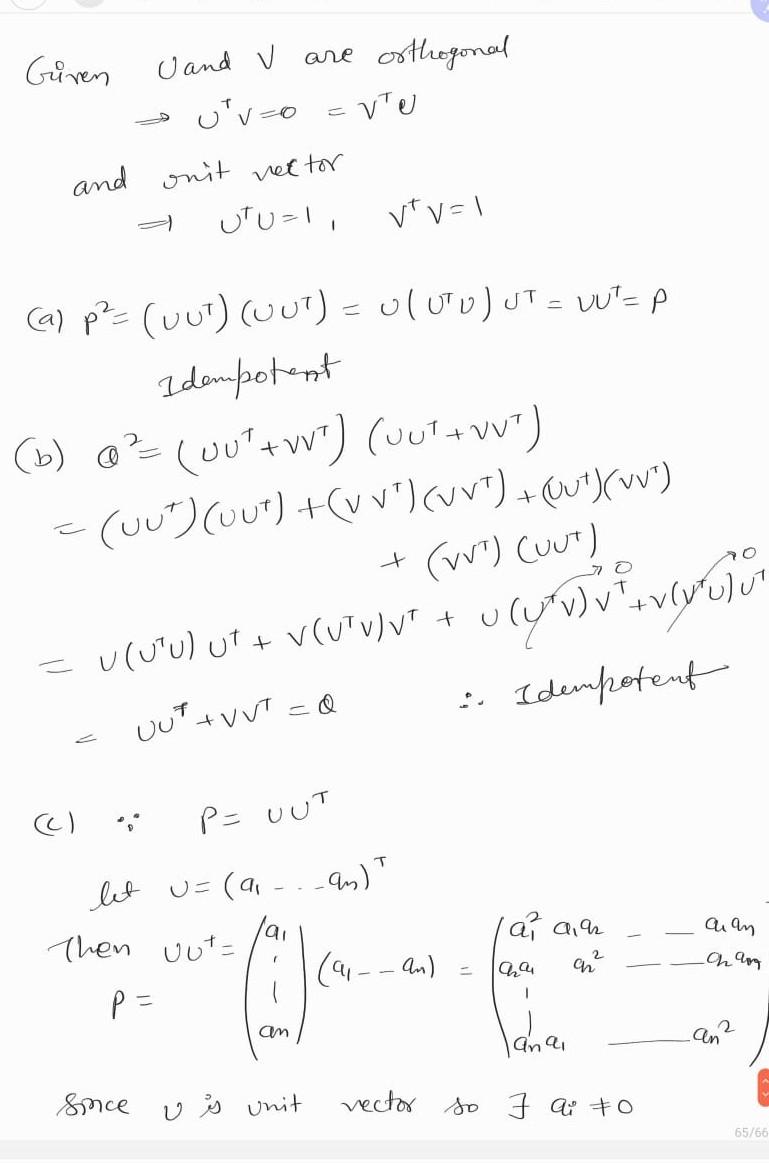 Given U and V are orthogonal
⇒ UᵀV=0 = VᵀU
and unit vector
⇒ UᵀU=1, VᵀV=1
(a) P²= (UUᵀ)(UUᵀ) = U(UᵀU)Uᵀ = UUᵀ= P
Idempotent
(b) Q²= (UUᵀ+VVᵀ) (UUᵀ+VVᵀ)
= (UUᵀ)(UUᵀ) + (VVᵀ)(VVᵀ) + (UUᵀ)(VVᵀ)
+ (VVᵀ) (UUᵀ)
= U(UᵀU)Uᵀ + V(UᵀV)Vᵀ + U(UᵀV)Vᵀ→0 + V(VᵀU)Uᵀ→0
= UUᵀ+VVᵀ = Q ∴ Idempotent
(c) ∵ P= UUᵀ
let U= (a₁ - - - aₙ)ᵀ
Then UUᵀ= (a₁ ⋮ aₙ) (a₁ - - aₙ) = (a₁² a₁a₂ - - a₁aₙ
P = a₂a₁ a₂² - - a₂aₙ
aₙa₁ - aₙ²)
Since U is unit vector so ∃ aᵢ ≠0
65/66